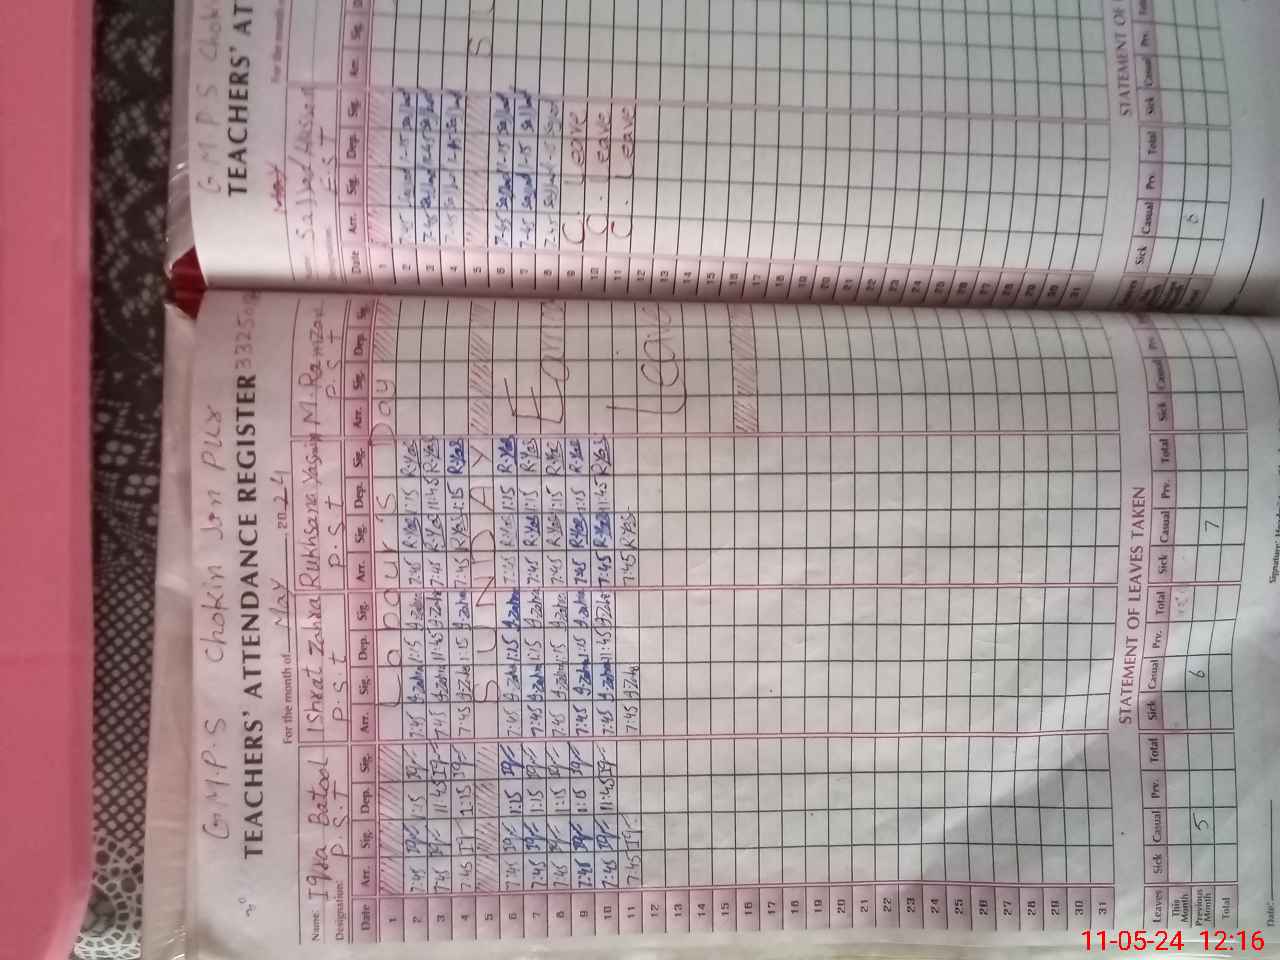 G.M.P.S Chokin Jon Pur
TEACHERS' ATTENDANCE REGISTER
For the month of May 2024
Name: Iqra Batool Ishrat Zahra Rukhsana Yasmin M. Ramzan
Designation: P.S.T P.S.T P.S.T P.S.T
Date Arr. Sig. Dep. Sig. Arr. Sig. Dep. Sig. Arr. Sig. Dep. Sig. Arr. Sig. Dep. Sig.
1 Labour's Day
2 7:45 Iq 1:15 Iq 7:45 I.Zahra 1:15 I.Zahra 7:45 R.Yas 1:15 R.Yas
3 7:45 Iq 11:45 Iq 7:45 I.Zahra 11:45 I.Zahra 7:45 R.Yas 11:45 R.Yas
4 7:45 Iq 1:15 Iq 7:45 I.Zahra 1:15 I.Zahra 7:45 R.Yas 1:15 R.Yas
5 SUNDAY
6 7:45 Iq 1:15 Iq 7:45 I.Zahra 1:15 I.Zahra 7:45 R.Yas 1:15 R.Yas
7 7:45 Iq 1:15 Iq 7:45 I.Zahra 1:15 I.Zahra 7:45 R.Yas 1:15 R.Yas
8 7:45 Iq 1:15 Iq 7:45 I.Zahra 1:15 I.Zahra 7:45 R.Yas 1:15 R.Yas
9 7:45 Iq 1:15 Iq 7:45 I.Zahra 1:15 I.Zahra 7:45 R.Yas 1:15 R.Yas
10 7:45 Iq 11:45 Iq 7:45 I.Zahra 11:45 I.Zahra 7:45 R.Yas 11:45 R.Yas
11 7:45 Iq 7:45 I.Zahra 7:45 R.Yas
Leave
12
13
14
15
16
17
18
19
20
21
22
23
24
25
26
27
28
29
30
31
STATEMENT OF LEAVES TAKEN
Leaves Sick Casual Prv. Total Sick Casual Prv. Total Sick Casual Prv. Total Sick Casual
This Month
Previous Month 5 6 7
Total
Date:
Signature
G.M.P.S
TEACHERS' AT
For the month
Sajjad Hussain
E.S.T
Date Arr. Sig. Dep. Sig. Arr. Sig.
1
2 7:45 Sajjad 1:15 Sajjad
3 7:45 Sajjad 11:45 Sajjad
4 7:45 Sajjad 1:15 Sajjad
5 S
6 7:45 Sajjad 1:15 Sajjad
7 7:45 Sajjad 1:15 Sajjad
8 7:45 Sajjad 1:15 Sajjad
9 C. Leave
10 C. Leave
11 C. Leave
12
13
14
15
16
17
18
19
20
21
22
23
24
25
26
27
28
29
30
31
STATEMENT OF
Sick Casual Prv. Total Sick Casual Prv.
11-05-24 12:16